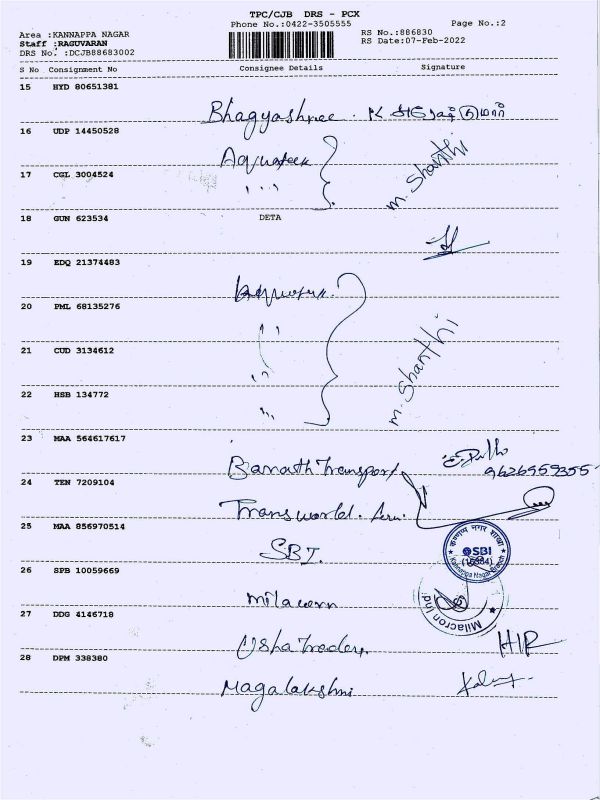 TPC/CJB DRS - PCX
Phone No.:0422-3505555
Page No.:2
Area :KANNAPPA NAGAR
RS No.:886830
Staff :RAGUVARAN
RS Date:07-Feb-2022
DRS No. :DCJB88683002
S No Consignment No Consignee Details Signature
15 HYD 80651381
Bhagyashree.
16 UDP 14450528
Aquatek
17 CGL 3004524
" M. Shanthi
18 GUN 623534 DETA
19 EDQ 21374483
20 PML 68135276
"
21 CUD 3134612
" M. Shanthi
22 HSB 134772
"
23 MAA 564617617
Banath Transport 9626959355
24 TEN 7209104
Transworld.
25 MAA 856970514
SBI.
कण्णप्पा नगर शाखा
SBI
Kannappa Nagar Branch
26 SPB 10059669
Milacron
Milacron Ind
27 DDG 4146718
Usha Traders HIR
28 DPM 338380
Magalakshmi